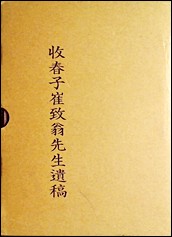 收春子崔致翁先生遺稿